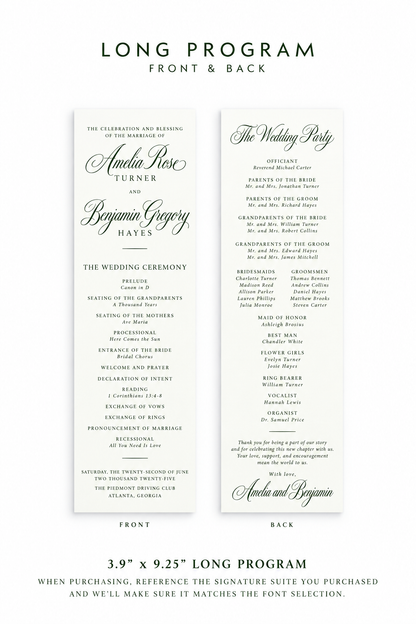 LONG PROGRAM
FRONT & BACK
THE CELEBRATION AND BLESSING
OF THE MARRIAGE OF
Amelia Rose
TURNER
AND
Benjamin Gregory
HAYES
THE WEDDING CEREMONY
PRELUDE
Canon in D
SEATING OF THE GRANDPARENTS
A Thousand Years
SEATING OF THE MOTHERS
Ave Maria
PROCESSIONAL
Here Comes the Sun
ENTRANCE OF THE BRIDE
Bridal Chorus
WELCOME AND PRAYER
DECLARATION OF INTENT
READING
1 Corinthians 13:4-8
EXCHANGE OF VOWS
EXCHANGE OF RINGS
PRONOUNCEMENT OF MARRIAGE
RECESSIONAL
All You Need Is Love
SATURDAY, THE TWENTY-SECOND OF JUNE
TWO THOUSAND TWENTY-FIVE
THE PIEDMONT DRIVING CLUB
ATLANTA, GEORGIA
FRONT
The Wedding Party
OFFICIANT
Reverend Michael Carter
PARENTS OF THE BRIDE
Mr. and Mrs. Jonathan Turner
PARENTS OF THE GROOM
Mr. and Mrs. Richard Hayes
GRANDPARENTS OF THE BRIDE
Mr. and Mrs. William Turner
Mr. and Mrs. Robert Collins
GRANDPARENTS OF THE GROOM
Mr. and Mrs. Edward Hayes
Mr. and Mrs. James Mitchell
BRIDESMAIDS
Charlotte Turner
Madison Reed
Allison Parker
Lauren Phillips
Julia Monroe
GROOMSMEN
Thomas Bennett
Andrew Collins
Daniel Hayes
Matthew Brooks
Steven Carter
MAID OF HONOR
Ashleigh Brosius
BEST MAN
Chandler White
FLOWER GIRLS
Evelyn Turner
Josie Hayes
RING BEARER
William Turner
VOCALIST
Hannah Lewis
ORGANIST
Dr. Samuel Price
Thank you for being a part of our story
and for celebrating this new chapter with us.
Your love, support, and encouragement
mean the world to us.
With love,
Amelia and Benjamin
BACK
3.9" x 9.25" LONG PROGRAM
WHEN PURCHASING, REFERENCE THE SIGNATURE SUITE YOU PURCHASED
AND WE'LL MAKE SURE IT MATCHES THE FONT SELECTION.